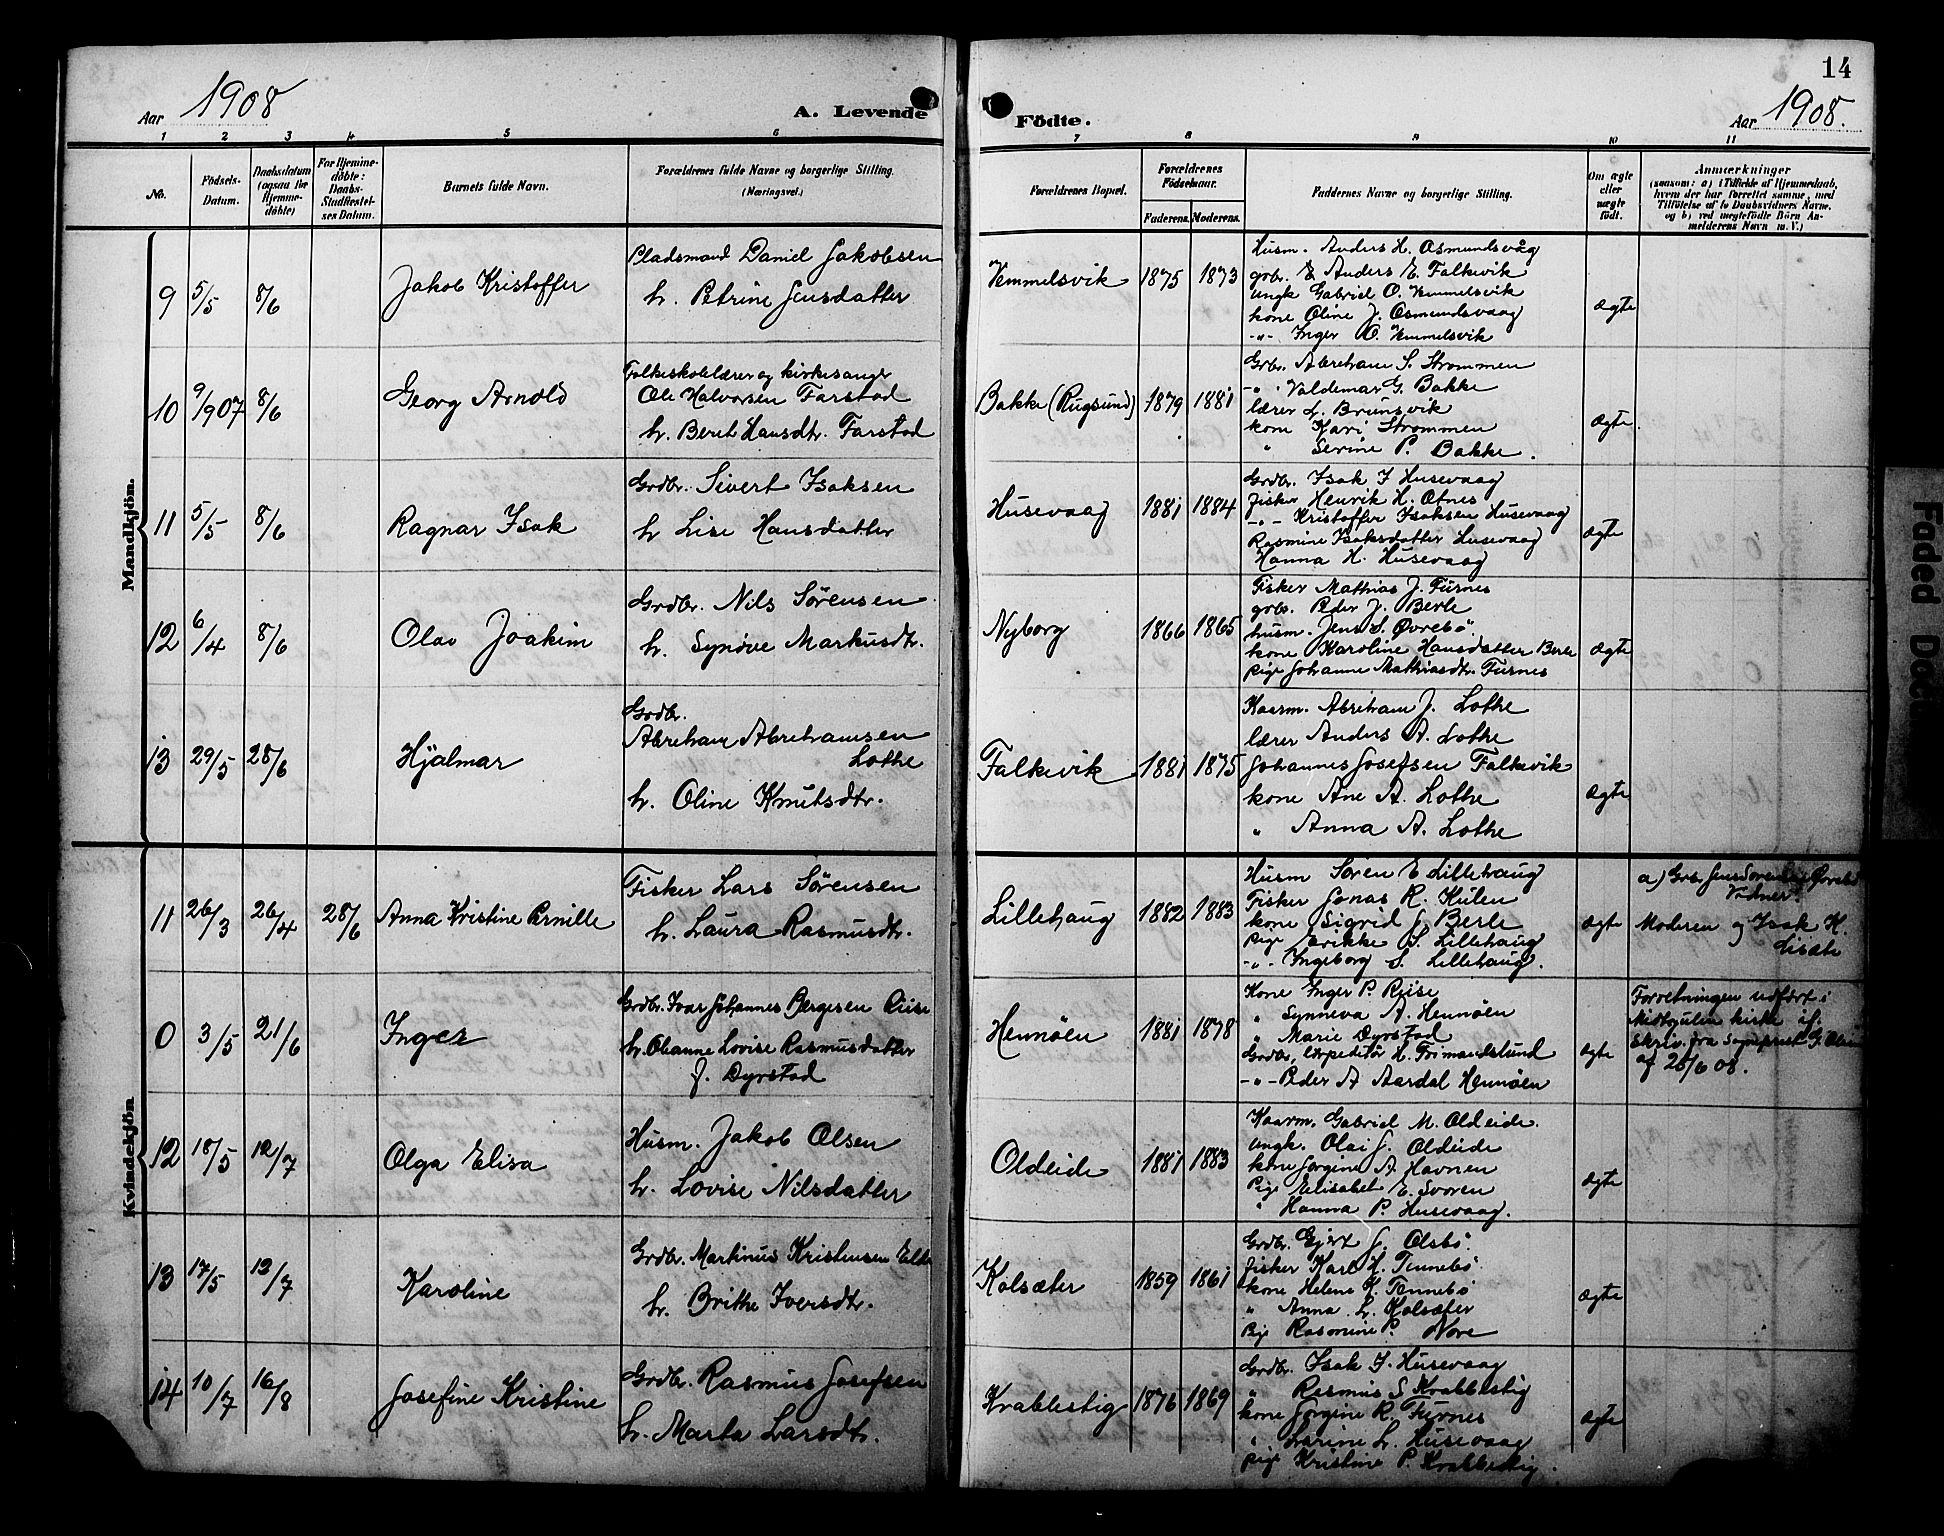 14
Aar 1908
A. Levende Födte.
Aar 1908.
1 2 3 4 5 6 7 8 9 10 11
No.
Födsels-Datum.
Daabsdatum (ogsaa for Hjemme-döbte)
For Hjemme-döbte: Daabs-Stadfæstel-ses Datum.
Barnets fulde Navn.
Forældrenes fulde Navne og borgerlige Stilling. (Næringsvei.)
Forældrenes Bopæl.
Forældrenes Födselsaar.
Faderens. Moderens.
Faddernes Navne og borgerlige Stilling.
Om ægte eller uægte födt.
Anmærkninger
(saasom: a) i Tilfælde af Hjemmedaab, hvem der har forrettet samme, med Tilföielse af to Daabsvidners Navne, og b) ved uegtefödte Börn An-melderens Navn m. V.)
Mandkjön.
9 5/5 8/6 Jakob Kristoffer
Pladsmand Daniel Jakobsen
h. Petrine Jensdatter
Vemmelsvik 1875 1873
Husm. Anders H. Osmundsvåg
grb. Anders E. Falkevik
ungk Gabriel O. Vemmelsvik
kone Oline J. Osmundsvaag
-"- Inger O. Vemmelsvik
ægte
10 9/9 07 8/6 Georg Arnold
Folkeskolelærer og kirkesanger
Ole Halvorsen Farstad
h. Beret Hansdtr. Farstad
Bakke (Rugsund) 1879 1881
Grb. Abreham S. Strømmen
-"- Valdemar G. Bakke
lærer L. Brunsvik
kone Kari Strømmen
" Serine P. Bakke.
ægte
11 5/5 8/6 Ragnar Isak
Grdbr. Sivert Isaksen
h Lise Hansdatter
Husevaag 1881 1884
Grdb. Isak I Husevaag
fisker Henrik H. Otnes
-"- Kristoffer Isaksen Husevaag
Rasmine Isaksdatter Husevaag
Hanna H. Husevaag
ægte
12 6/4 8/6 Olav Joakim
Grdbr. Nils Sørensen
h. Synøve Markusdtr.
Nyborg 1866 1865
Fisker Mathias J. Furnes
grb. Peder J. Berle
husm. Jens S. Øvrebø
kone Karoline Hansdatter Berle
pige Johanne Mathiasdtr. Furnes
ægte
13 29/5 28/6 Hjalmar
Grdbr.
Abreham Abrehamsen
Lothe
h. Oline Knutsdtr.
Falkevik 1881 1875
Kaarm. Abreham J. Lothe
lærer Anders A. Lothe
Johannes Josefsen Falkevik
kone Ane A. Lothe
" Anna A. Lothe
ægte
Kvindekjön
11 26/3 26/4 28/6 Anna Kristine Pernille
Fisker Lars Sørensen
h. Laura Rasmusdtr.
Lillehaug 1882 1883
Husm Søren E Lillehaug
Fisker Jonas R. Hulen
kone Sigrid J Berle
pige Erikke S. Lillehaug
-"- Ingeborg S. Lillehaug.
ægte
a) Grb. Jens Sørensen Øvrebø
Vidner:
Moderen og Isak H.
Lisæte
0 3/5 21/6 Inger
Grdbr. Ivar Johannes Børgesen Riise
h. Olianne Lovise Rasmusdatter
f. Dyrstad
Hennøen 1881 1878
Kone Inger P. Riise
" Synneva A. Hennøen
" Marie Dyrstad
Grdbr., Expeditør H. Frimandslund
-"- Peder A Aardal Hennøen
ægte
Forretningen udført i
Midtgulen kirke ifl.
skriv. fra Sogneprest
af 28/6 08.
12 18/5 12/7 Olga Elisa
Husm. Jakob Olsen
h. Lovise Nilsdatter
Oldeide 1881 1883
Kaarm. Gabriel M. Oldeide.
ungk. Olai J. Oldeide
kone Jorgine A. Havnen
Pige Elisabet E. Svoren
" Hanna P. Husevaag.
ægte
13 17/5 12/7 Karoline
Grdbr. Martinus Kristensen Elde
h. Brithe Iversdtr.
Kolsæter 1859 1861
Grdbr. Gjert J. Olsbø.
fisker Karl H. Tennebø
kone Helene K. Tennebø
" Anna L. Kolsæter
Pige Rasmine P. Nore
ægte
14 10/7 16/8 Josefine Kristine
Grdbr. Rasmus Josefsen
h. Marta Larsdtr.
Krabbestig 1876 1869
Grdbr. Isak I. Husevaag
" Rasmus S Krabbestig
kone Jorgine R Furnes
" Larine L. Husevaag
pige Kristine P. Krabbestig.
ægte
Faded Doc